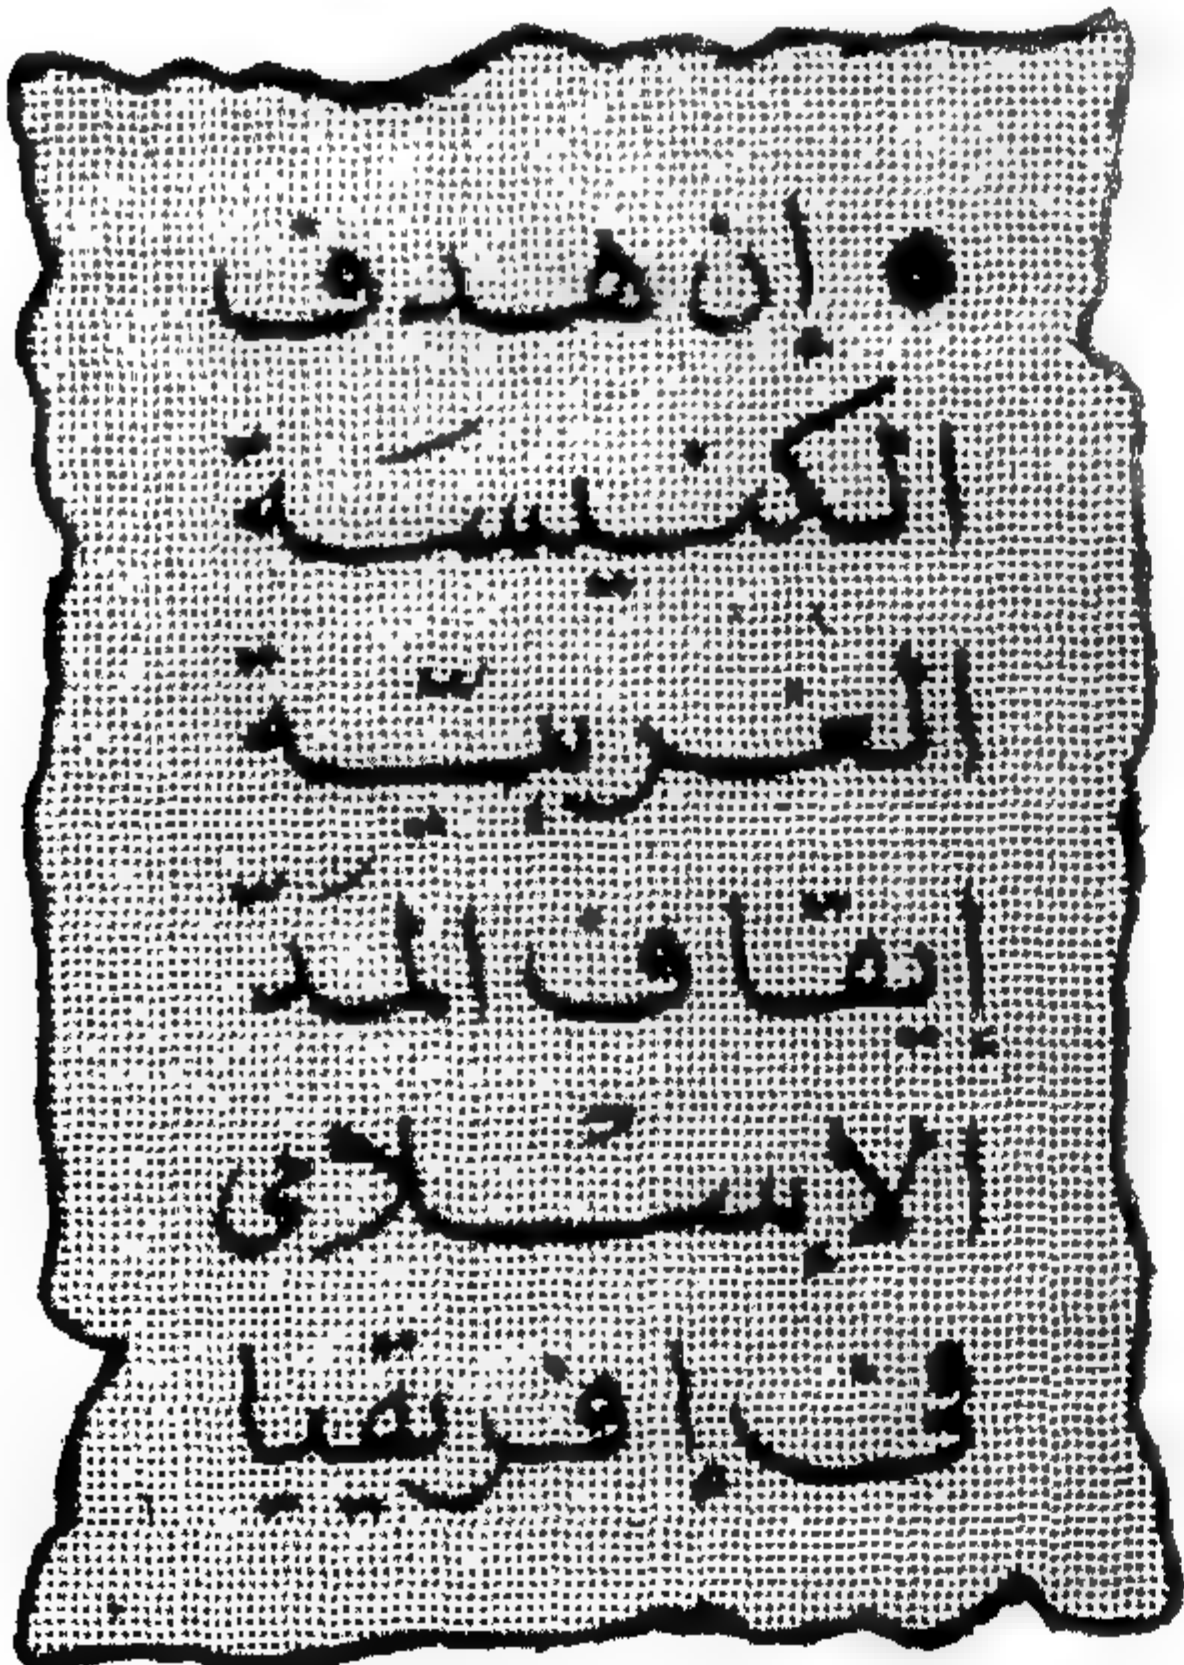 ● إن هدف
الكنيسة
الغربيّة
إيقاف المد
الإسلامى
فى إفريقيا